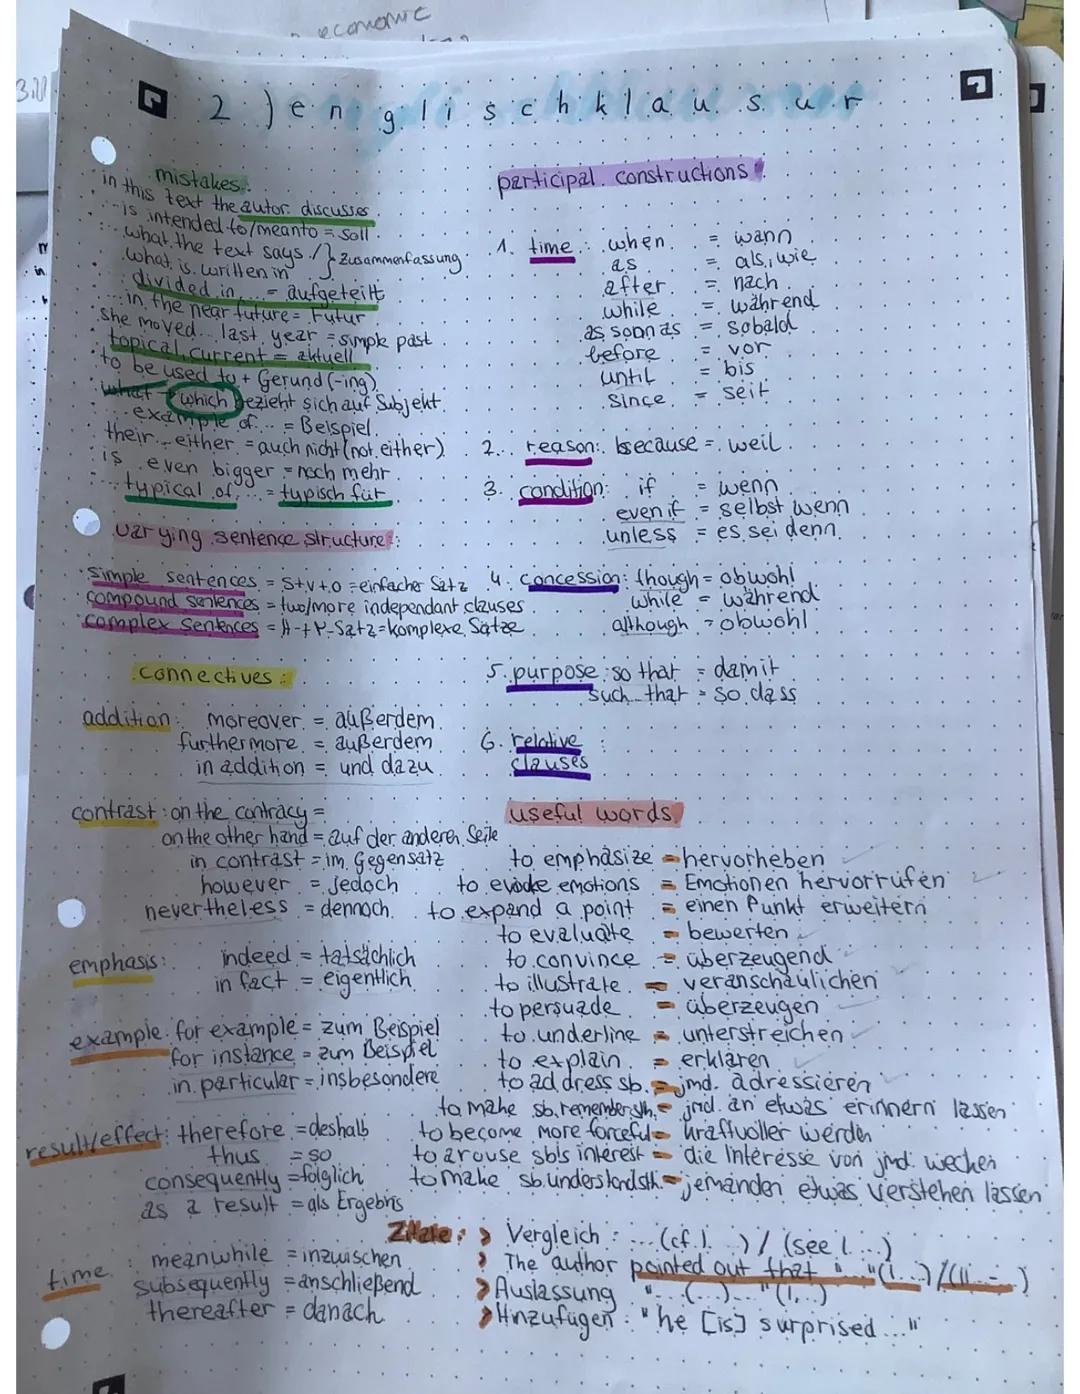 economic
2.) englischklausur
mistakes:
in this text the autor discusses
is intended to/meanto = soll
what the text says /
what is written in } Zusammenfassung
divided in ... = aufgeteilt
... in the near future = Futur
she moved... last year = simple past
topical, current = aktuell
to be used to + Gerund (-ing)
what → which bezieht sich auf Subjekt
example of... = Beispiel
their... either = auch nicht (not either)
is even bigger = noch mehr
typical of... = typisch für
varying sentence structure:
simple sentences = S+V+O = einfacher Satz
compound sentences = two/more independant clauses
complex sentences = H-+N-Satz = komplexe Sätze
connectives:
addition: moreover = außerdem
furthermore = außerdem
in addition = und dazu
contrast: on the contracy =
on the other hand = auf der anderen Seite
in contrast = im Gegensatz
however = jedoch
nevertheless = dennoch
emphasis: indeed = tatsächlich
in fact = eigentlich
example: for example = zum Beispiel
for instance = zum Beispiel
in particular = insbesondere
result/effect: therefore = deshalb
thus = so
consequently = folglich
as a result = als Ergebnis
time: meanwhile = inzwischen
subsequently = anschließend
thereafter = danach
participal constructions
1. time: when = wann
as = als, wie
after = nach
while = während
as soon as = sobald
before = vor
until = bis
since = seit
2. reason: because = weil
3. condition: if = wenn
even if = selbst wenn
unless = es sei denn
4. concession: though = obwohl
while = während
although = obwohl
5. purpose: so that = damit
such that = so dass
6. relative :
clauses
useful words
to emphasize = hervorheben
to evoke emotions = Emotionen hervorrufen
to expand a point = einen Punkt erweitern
to evaluate = bewerten
to convince = überzeugend
to illustrate = veranschaulichen
to persuade = überzeugen
to underline = unterstreichen
to explain = erklären
to address sb. = jmd. adressieren
to make sb. remember sth. = jmd. an etwas erinnern lassen
to become more forceful = kraftvoller werden
to arouse sb's interest = die Interesse von jmd. wecken
to make sb. understand sth. = jemanden etwas verstehen lassen
Zitate: > Vergleich: ...(cf. l. ...) / (see l. ...)
> The author pointed out that "..." (l. ...) / (ll. ... - ...)
> Auslassung "...(...)..." (l. ...)
> Hinzufügen: "he [is] surprised..."